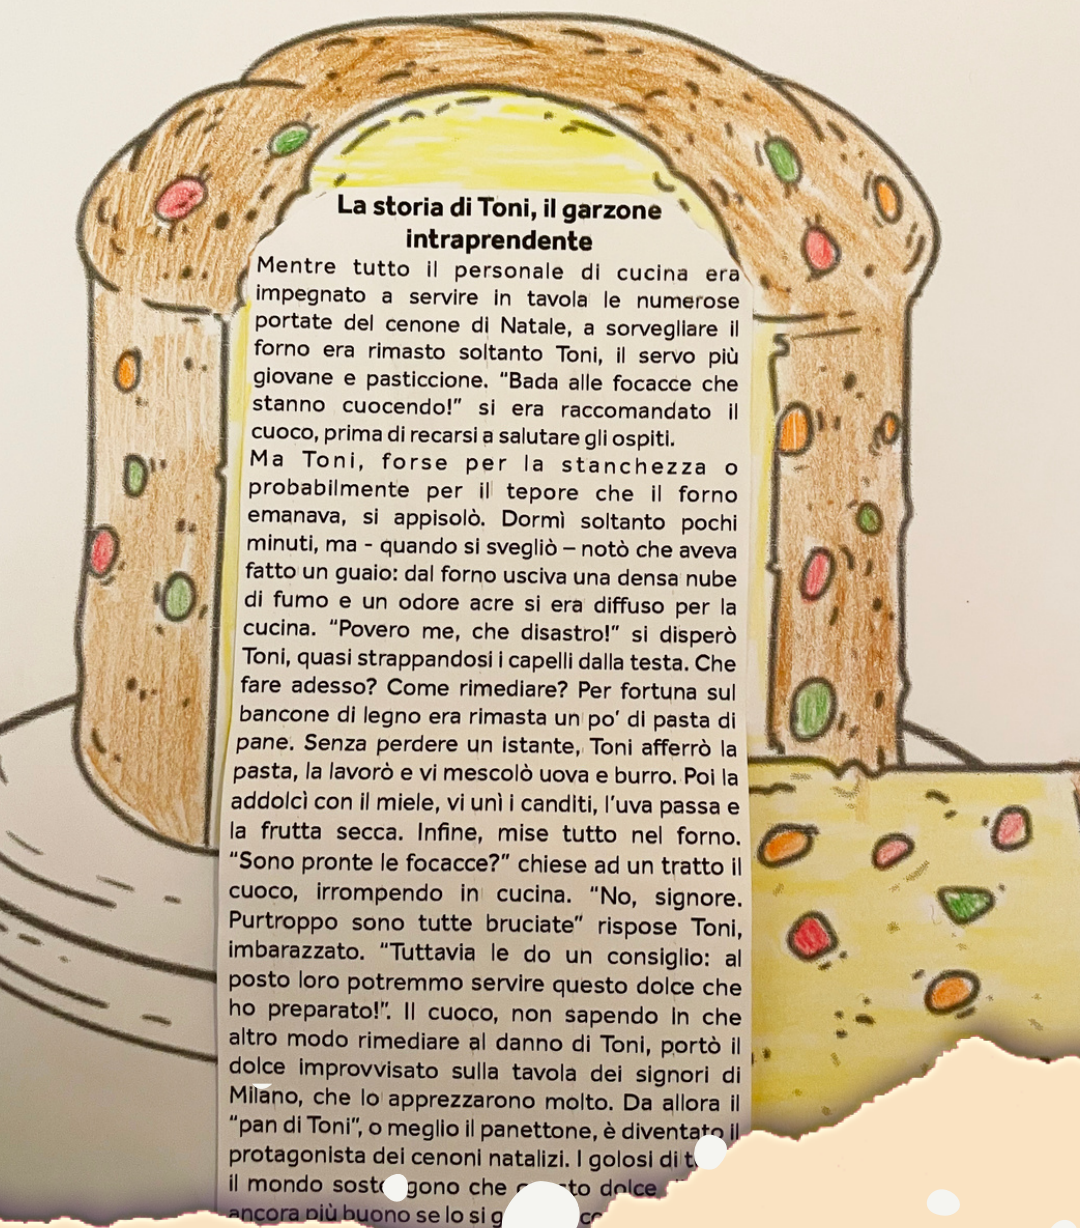 La storia di Toni, il garzone
intraprendente
Mentre tutto il personale di cucina era
impegnato a servire in tavola le numerose
portate del cenone di Natale, a sorvegliare il
forno era rimasto soltanto Toni, il servo più
giovane e pasticcione. “Bada alle focacce che
stanno cuocendo!” si era raccomandato il
cuoco, prima di recarsi a salutare gli ospiti.
Ma Toni, forse per la stanchezza o
probabilmente per il tepore che il forno
emanava, si appisolò. Dormì soltanto pochi
minuti, ma - quando si svegliò – notò che aveva
fatto un guaio: dal forno usciva una densa nube
di fumo e un odore acre si era diffuso per la
cucina. “Povero me, che disastro!” si disperò
Toni, quasi strappandosi i capelli dalla testa. Che
fare adesso? Come rimediare? Per fortuna sul
bancone di legno era rimasta un po’ di pasta di
pane. Senza perdere un istante, Toni afferrò la
pasta, la lavorò e vi mescolò uova e burro. Poi la
addolcì con il miele, vi unì i canditi, l’uva passa e
la frutta secca. Infine, mise tutto nel forno.
“Sono pronte le focacce?” chiese ad un tratto il
cuoco, irrompendo in cucina. “No, signore.
Purtroppo sono tutte bruciate” rispose Toni,
imbarazzato. “Tuttavia le do un consiglio: al
posto loro potremmo servire questo dolce che
ho preparato!”. Il cuoco, non sapendo in che
altro modo rimediare al danno di Toni, portò il
dolce improvvisato sulla tavola dei signori di
Milano, che lo apprezzarono molto. Da allora il
“pan di Toni”, o meglio il panettone, è diventato il
protagonista dei cenoni natalizi. I golosi di
il mondo sostengono che dolce
ancora più buono se lo si